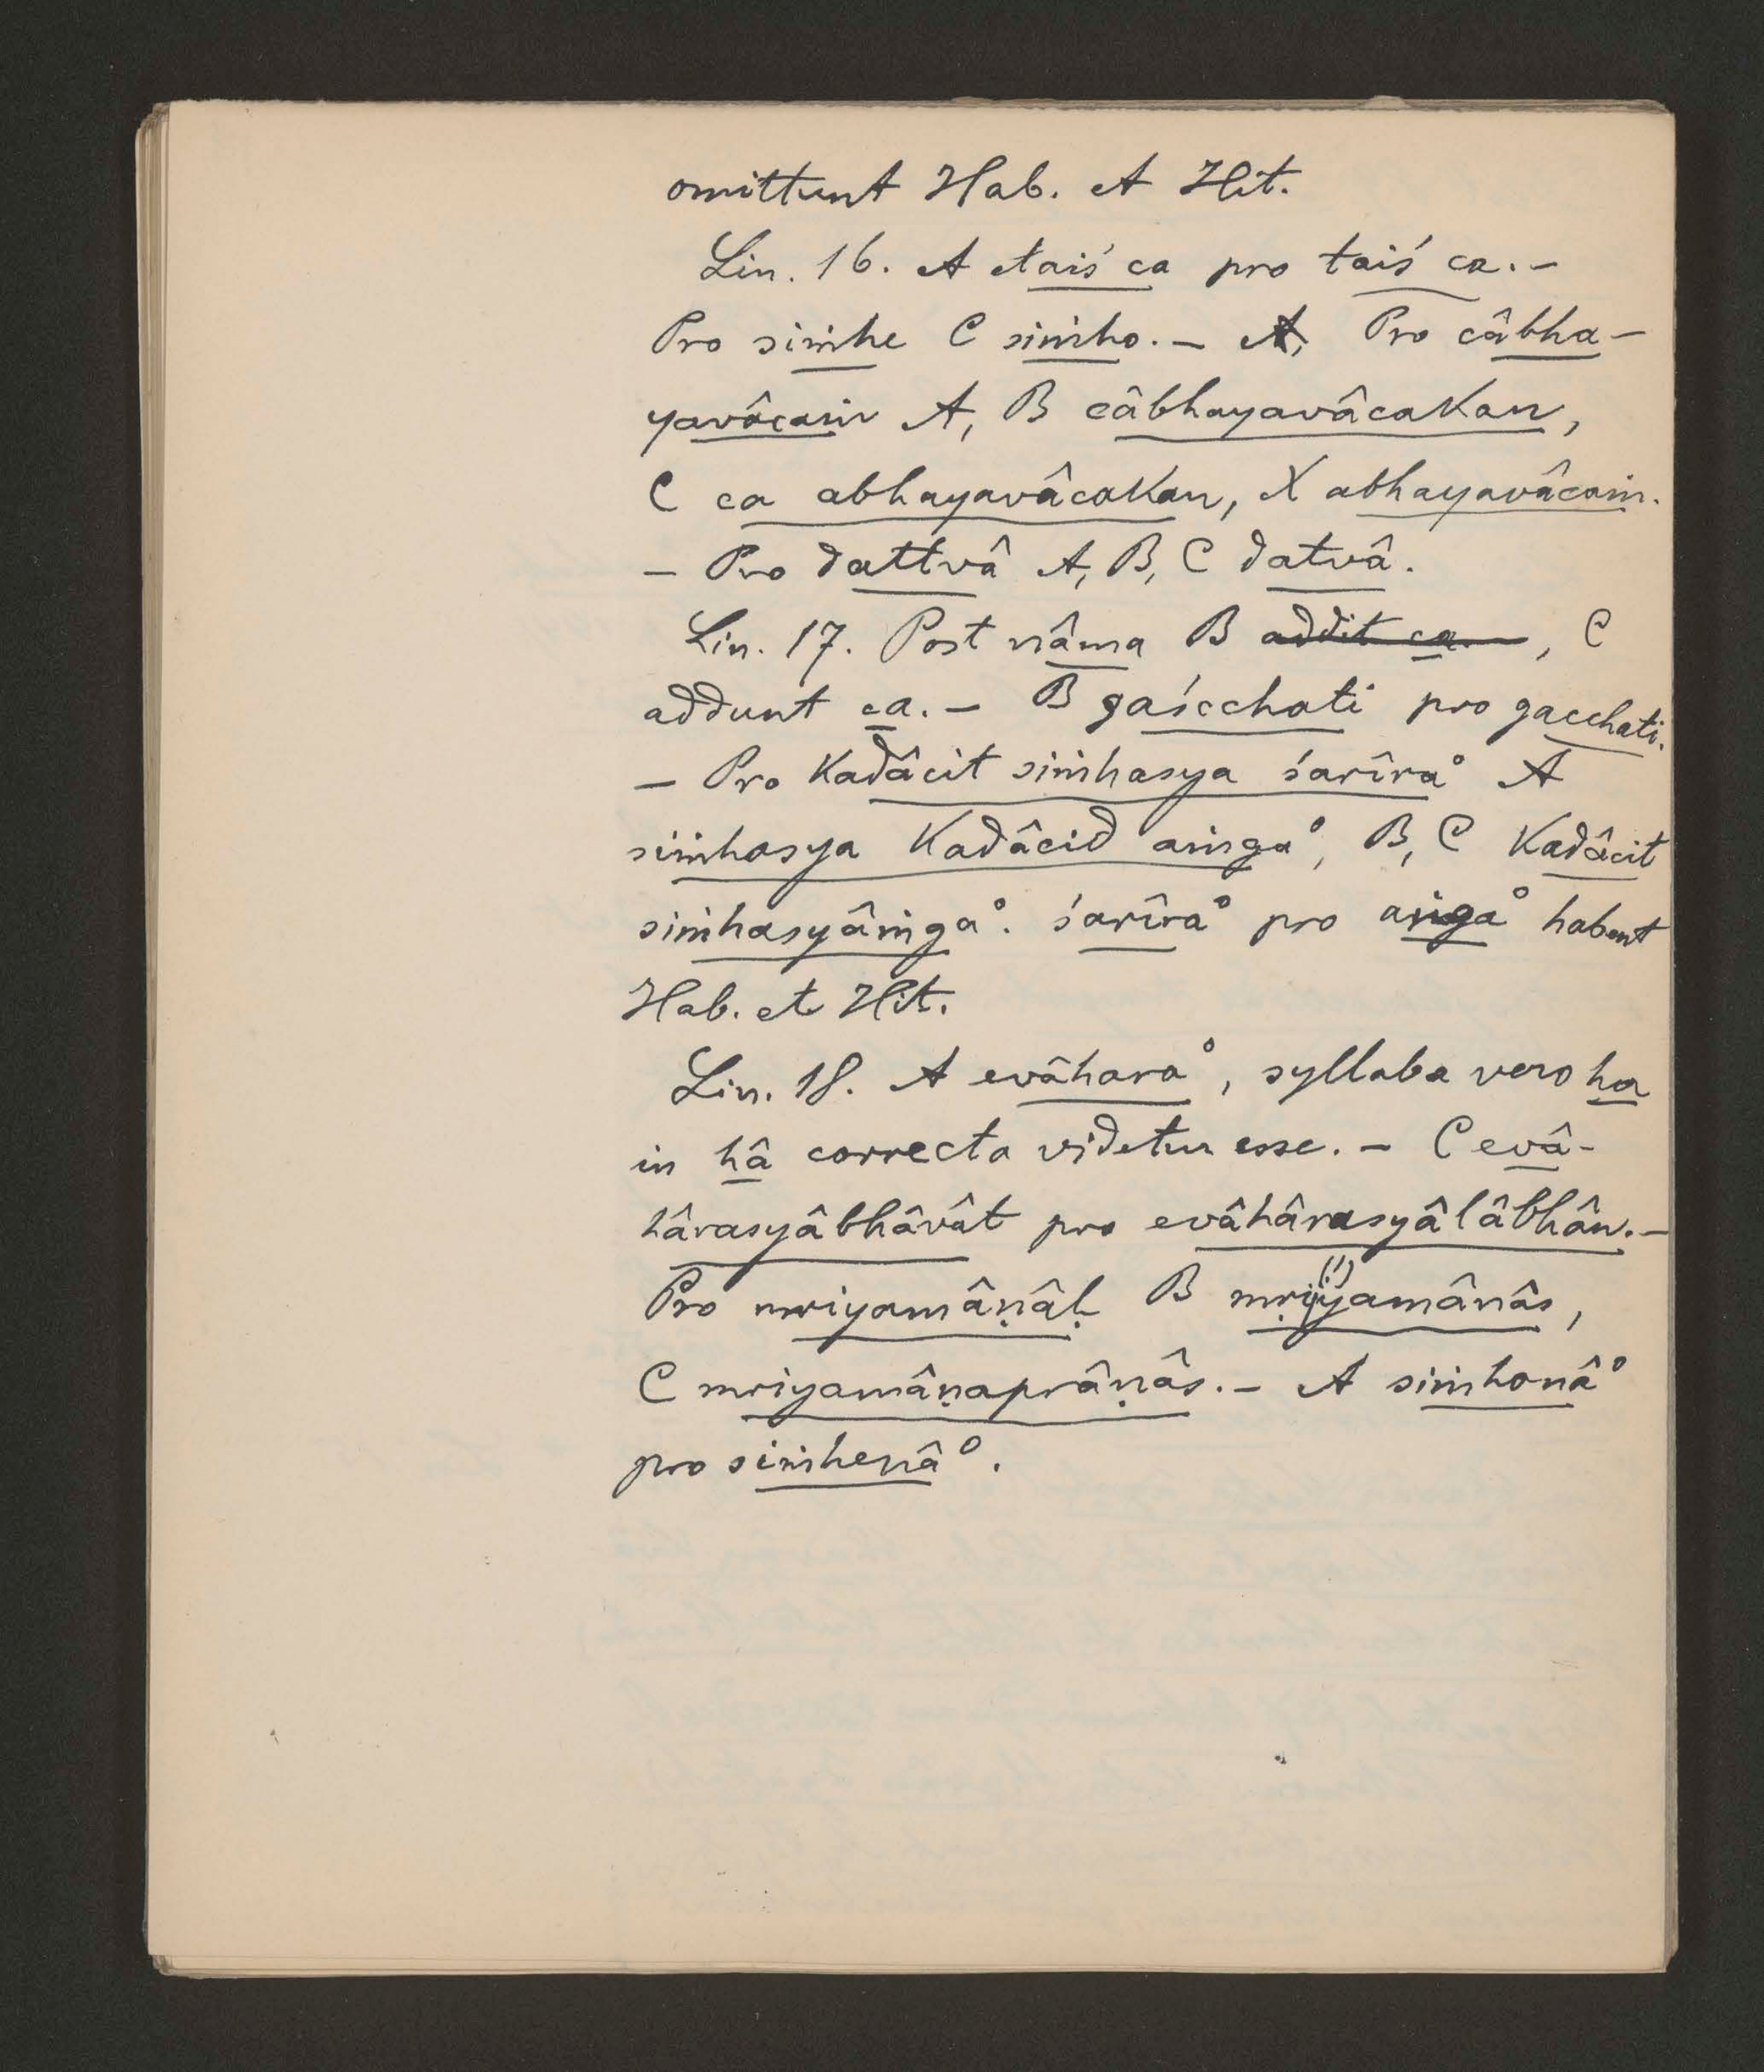 omittunt Hab. et Hit.
Lin. 16. A etaiś ca pro taiś ca. –
Pro siṁhe C siṁho. – A, Pro câbha-
yavâcaṁ A, B câbhayavâcakan,
C ca abhayavâcakan, X abhayavâcaṁ.
– Pro dattvâ A, B, C datvâ.
Lin. 17. Post nâma B addit ca, C
addunt ca. – B gaścchati pro gacchati.
– Pro kadâcit siṁhasya śarîra° A
siṁhasya kadâcid aṁga°, B, C kadâcit
siṁhasyâṁga°. śarîra° pro aṁga° habent
Hab. et Hit.
Lin. 18. A evâhara°, syllaba vero ha
in hâ correcta videtur esse. – C evâ-
hârasyâbhâvât pro evâhârasyâlâbhân. –
Pro mriyamâṇâḥ B mṛiyamânâs,
(!)
C mriyamâṇaprâṇâs. – A siṁhonâ°
pro siṁhenâ°.